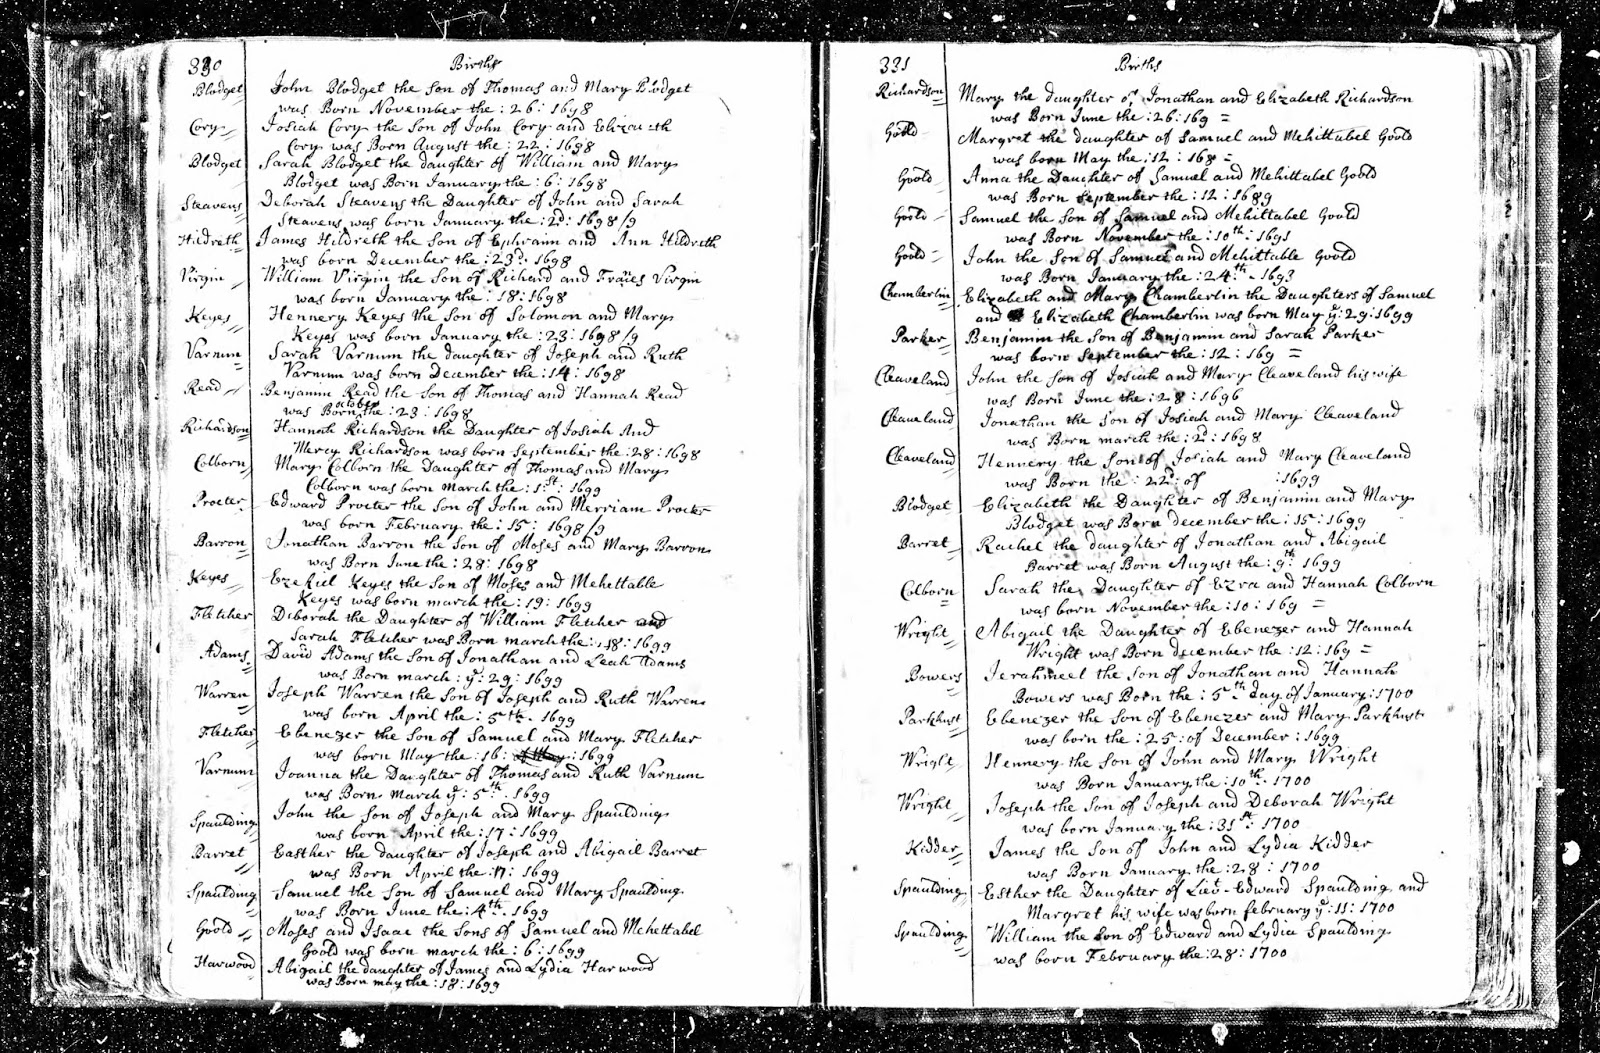 330
Births
Blodget John Blodget the Son of Thomas and Mary Blodget
was Born November the : 26 : 1698
Cory Josiah Cory the Son of John Cory and
Cory was Born August the : 22 : 1698
Blodget Sarah Blodget the daughter of William and Mary
Blodget was Born January the : 6 : 1698
Steavens Deborah Steavens the Daughter of John and Sarah
Steavens was born January the : 2d : 1698/9
Hildreth James Hildreth the Son of Ephraim and Ann Hildreth
was born December the : 23d : 1698
Virgin William Virgin the Son of Richard and Virgin
was born January the : 18 : 1698
Keyes Hennery Keyes the Son of Solomon and Mary
Keyes was born January the : 23 : 1698/9
Varnum Sarah Varnum the daughter of Joseph and Ruth
Varnum was born December the : 14 : 1698
Read Benjamin Read the Son of Thomas and Hannah Read
was Born october the : 23 : 1698
Richardson Hannah Richardson the Daughter of Josiah And
Mercy Richardson was born September the : 28 : 1698
Colborn Mary Colborn the Daughter of Thomas and Mary
Colborn was born March the : 1st : 1699
Procter Edward Procter the Son of John and Merriam Procter
was born February the : 15 : 1698/9
Barron Jonathan Barron the Son of Moses and Mary Barron
was Born June the : 28 : 1698
Keyes Ezekiel Keyes the Son of Moses and Mehettable
Keyes was born march the : 19 : 1699
Fletcher Deborah the Daughter of William Fletcher and
Sarah Fletcher was Born march the : 18 : 1699
Adams David Adams the Son of Jonathan and Leah Adams
was Born march : ye : 29 : 1699
Warren Joseph Warren the Son of Joseph and Ruth Warren
was born April the : 5th : 1699
Fletcher Ebenezer the Son of Samuel and Mary Fletcher
was born May the 16 : of May : 1699
Varnum Joanna the Daughter of Thomas and Ruth Varnum
was Born March ye : 5th : 1699
Spaulding John the Son of Joseph and Mary Spaulding
was born April the : 17 : 1699
Barret Easther the daughter of Joseph and Abigail Barret
was Born April the : 17 : 1699
Spaulding Samuel the Son of Samuel and Mary Spaulding
was Born June the : 4th : 1699
Goold Moses and Isaac the Sons of Samuel and Mehettabel
Goold was born march the : 6 : 1699
Harwood Abigail the daughter of James and Lydia Harwood
was Born may the : 18 : 1699
331
Births
Richardson Mary the daughter of Jonathan and Elizabeth Richardson
was Born June the : 26 : 169 =
Goold Margret the daughter of Samuel and Mehittabel Goold
was born May the : 12 : 168 =
Goold Anna the Daughter of Samuel and Mehittabel Goold
was Born September the : 12 : 1689
Goold Samuel the Son of Samuel and Mehittabel Goold
was Born November the : 10th : 1691
Goold John the Son of Samuel and Mehittable Goold
was Born January the : 24th : 1693
Chamberlin Elizabeth and Mary Chamberlin the Daughters of Samuel
and Elizabeth Chamberlin was born May ye : 29 : 1699
Parker Benjamin the Son of Benjamin and Sarah Parker
was born September the : 12 : 169 =
Cleaveland John the Son of Josiah and Mary Cleaveland his wife
was Born June the : 28 : 1696
Cleaveland Jonathan the Son of Josiah and Mary Cleaveland
was Born march the : 2d : 1698
Cleaveland Hennery the Son of Josiah and Mary Cleaveland
was Born the : 22d : of : 1699
Blodget Elizabeth the Daughter of Benjamin and Mary
Blodget was Born december the : 15 : 1699
Barret Rachel the daughter of Jonathan and Abigail
Barret was Born August the : 9th : 1699
Colborn Sarah the Daughter of Ezra and Hannah Colborn
was born November the : 10 : 169 =
Wright Abigail the Daughter of Ebenezer and Hannah
Wright was Born december the : 12 : 169 =
Bowers Jerahmeel the Son of Jonathan and Hannah
Bowers was Born the : 5th day of January : 1700
Parkhust Ebenezer the Son of Ebenezer and Mary Parkhust
was born the : 25 : of December : 1699
Wright Hennery the Son of John and Mary Wright
was Born January the : 10th : 1700
Wright Joseph the Son of Joseph and Deborah Wright
was born January the : 31st : 1700
Kidder James the Son of John and Lydia Kidder
was Born January the : 28 : 1700
Spaulding Esther the Daughter of Lieu - Edward Spaulding and
Margret his wife was born february ye : 11 : 1700
Spaulding William the Son of Edward and Lydia Spaulding
was born February the : 28 : 1700